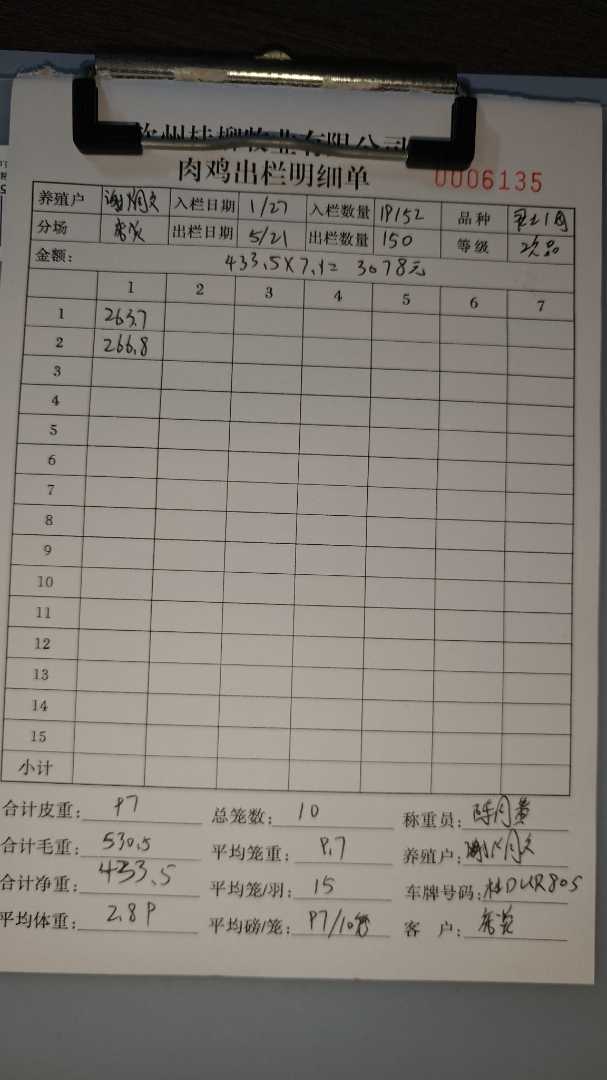 桂柳牧业有限公司
肉鸡出栏明细单 0006135
养殖户 入栏日期 1/27 入栏数量 19152 品种
分场 出栏日期 5/21 出栏数量 150 等级 次品
金额: 433.5×7.1= 3078元
1 2 3 4 5 6 7
1 263.7
2 266.8
3
4
5
6
7
8
9
10
11
12
13
14
15
小计
合计皮重: 97 总笼数: 10 称重员:
合计毛重: 530.5 平均笼重: 9.7 养殖户:
合计净重: 433.5 平均笼/羽: 15 车牌号码: 桂DUR805
平均体重: 2.89 平均磅/笼: 97/10笼 客户: